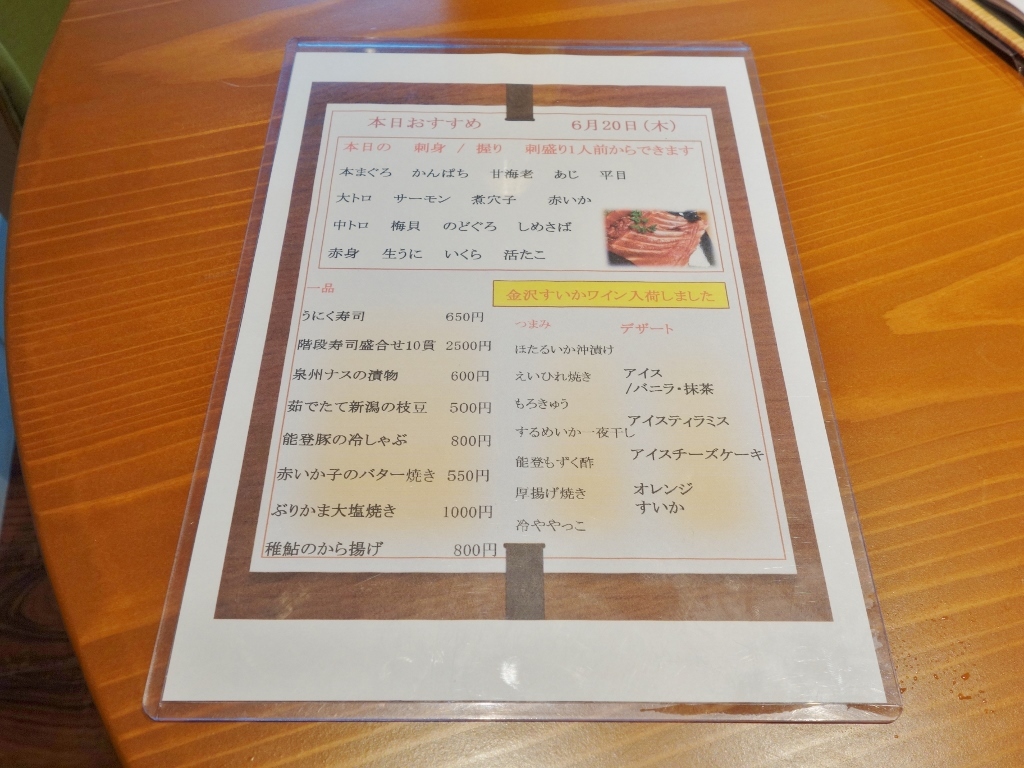 本日おすすめ 6月20日(木)
本日の 刺身 / 握り 刺盛り1人前からできます
本まぐろ かんぱち 甘海老 あじ 平目
大トロ サーモン 煮穴子 赤いか
中トロ 梅貝 のどぐろ しめさば
赤身 生うに いくら 活たこ
金沢すいかワイン入荷しました
一品
うにく寿司 650円
階段寿司盛合せ10貫 2500円
泉州ナスの漬物 600円
茹でたて新潟の枝豆 500円
能登豚の冷しゃぶ 800円
赤いか子のバター焼き 550円
ぶりかま大塩焼き 1000円
稚鮎のから揚げ 800円
つまみ
ほたるいか沖漬け
えいひれ焼き
もろきゅう
するめいか一夜干し
能登もずく酢
厚揚げ焼き
冷ややっこ
デザート
アイス
/バニラ・抹茶
アイスティラミス
アイスチーズケーキ
オレンジ
すいか